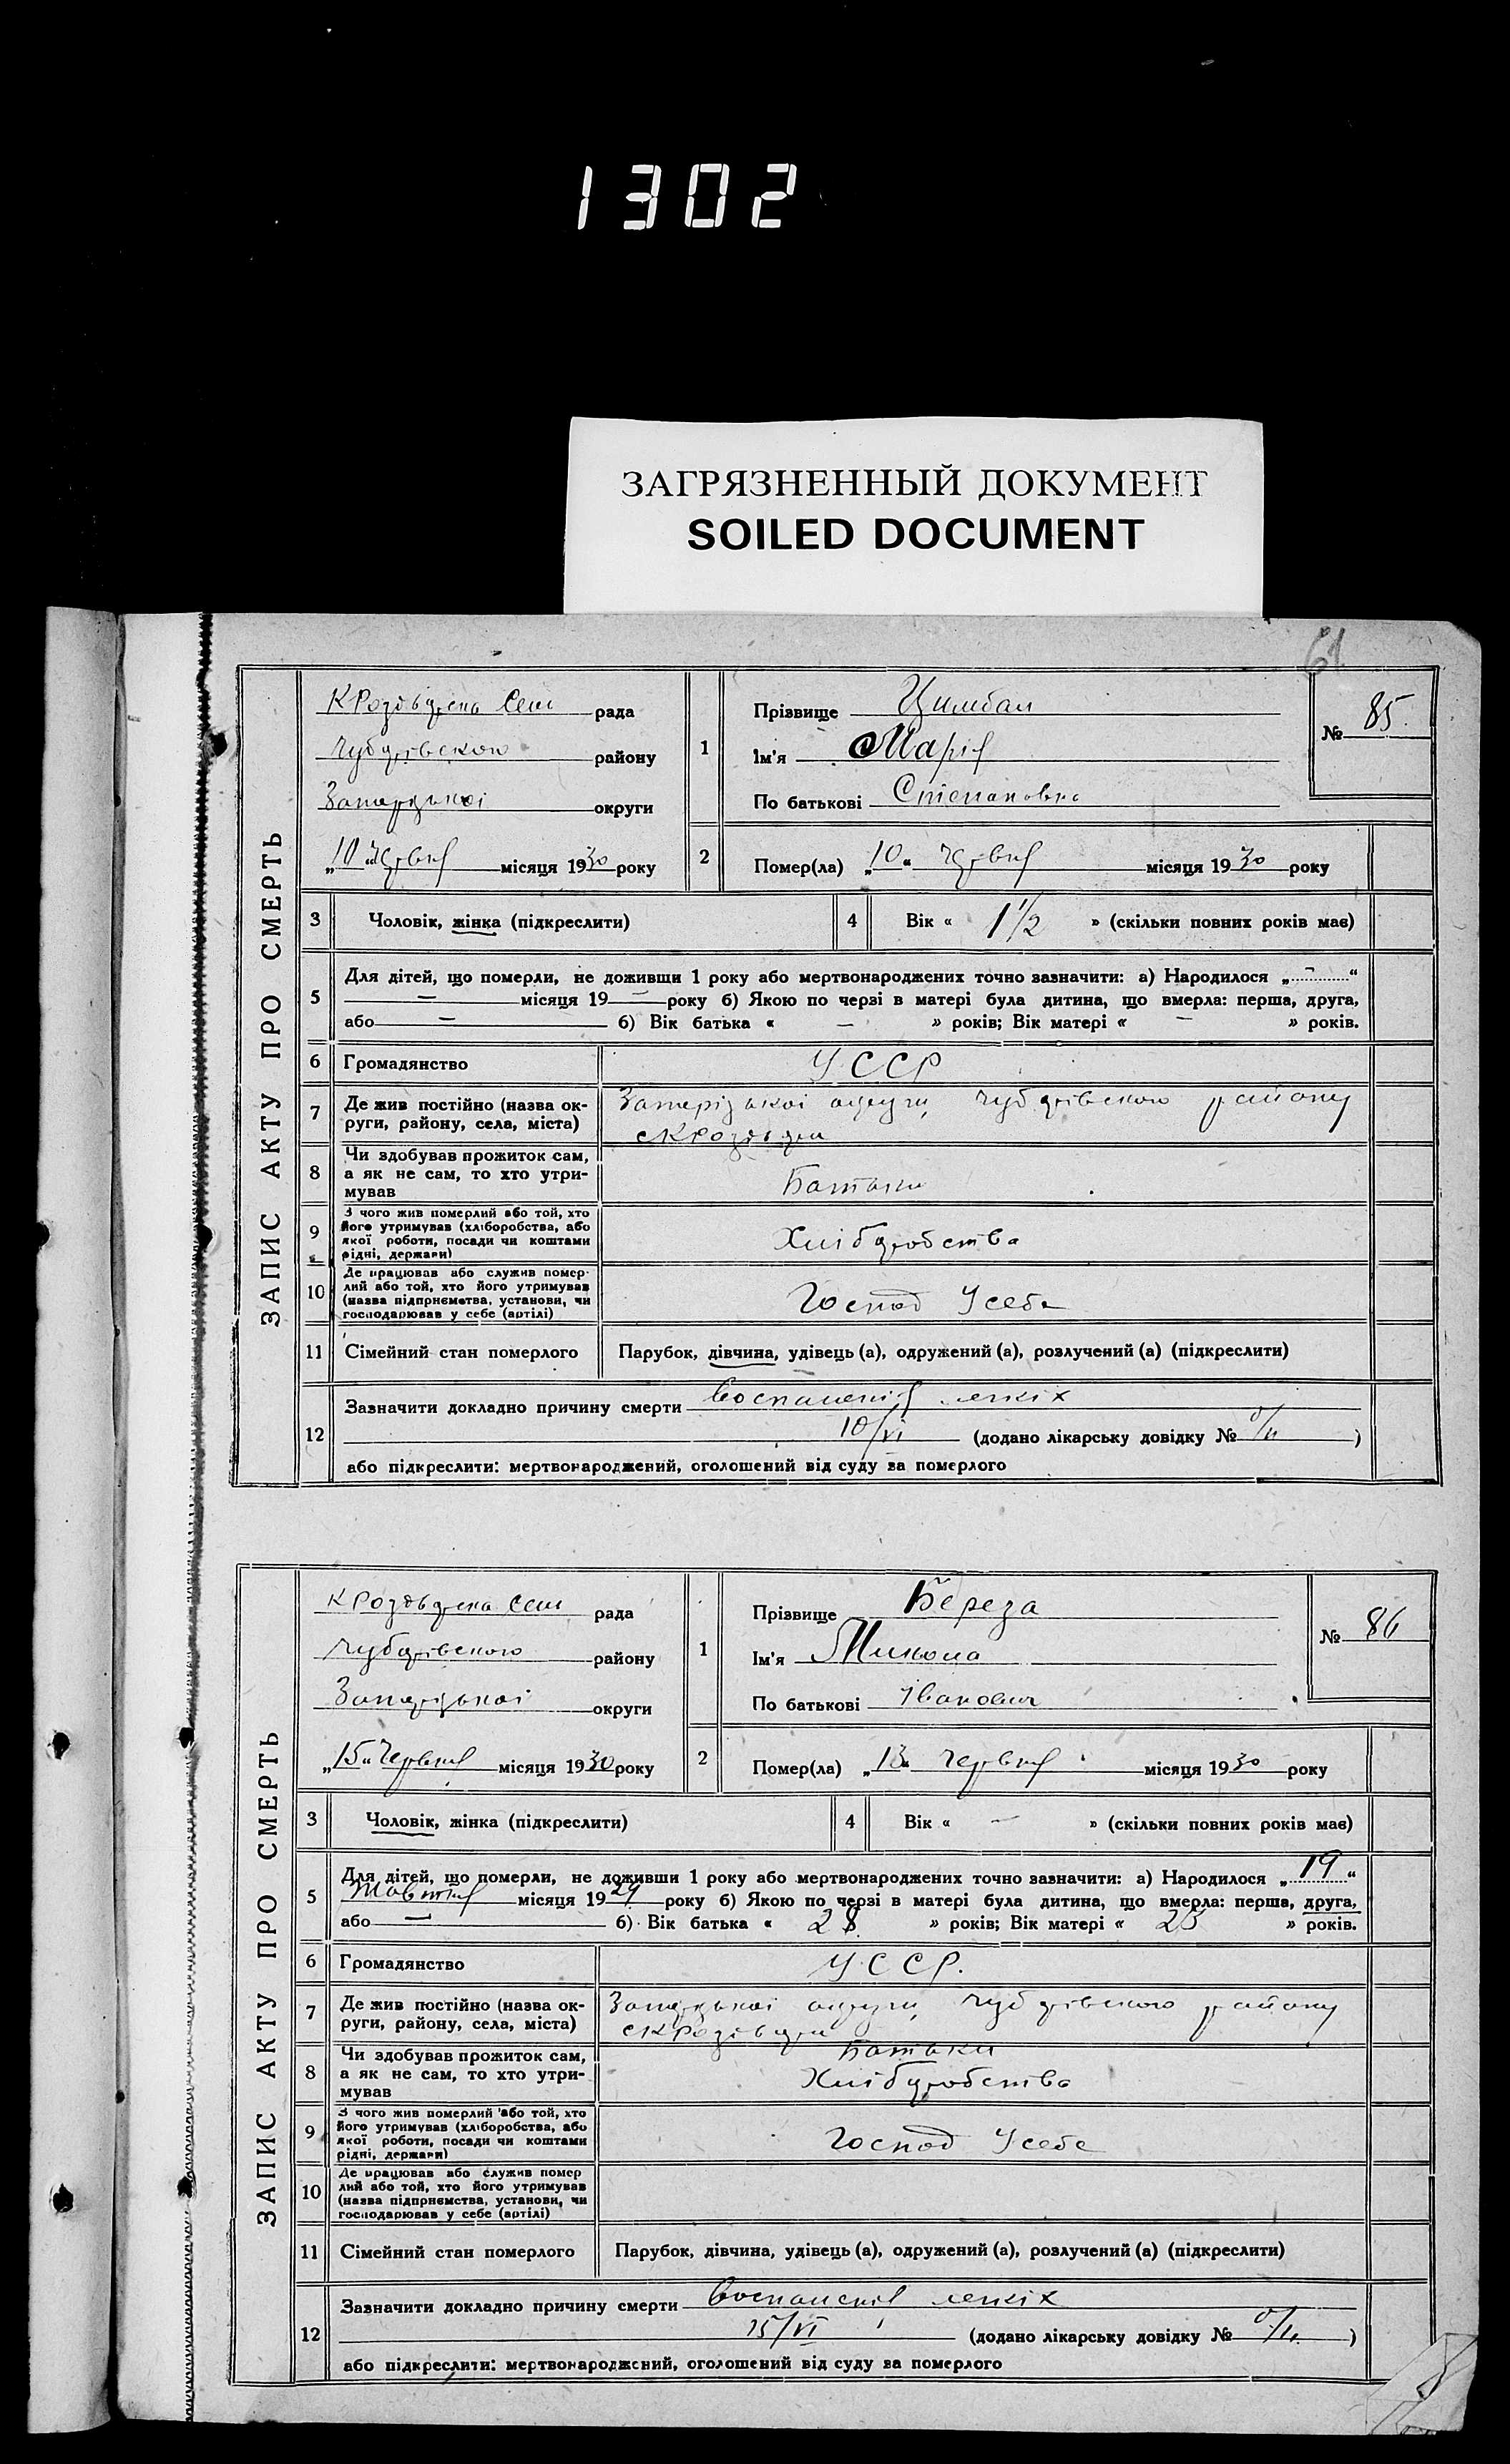 1302
ЗАГРЯЗНЕННЫЙ ДОКУМЕНТ
SOILED DOCUMENT
61
ЗАПИС АКТУ ПРО СМЕРТЬ
рада
району
округи
„10“ місяця 1930 року
1
Прізвище Цимбал
Ім'я Марія
По батькові Степановна
№ 85
2
Помер(ла) „10“ місяця 1930 року
3 Чоловік, жінка (підкреслити)
4 Вік « 1 1/2 » (скільки повних років має)
5
Для дітей, що померли, не доживши 1 року або мертвонароджених точно зазначити: а) Народилося „–“
– місяця 19 – року б) Якою по черзі в матері була дитина, що вмерла: перша, друга,
або – б) Вік батька « – » років; Вік матері « – » років.
6 Громадянство УССР
7 Де жив постійно (назва ок-
руги, району, села, міста)
округи району
8 Чи здобував прожиток сам,
а як не сам, то хто утри-
мував
Батьки
9 З чого жив померлий або той, хто
його утримував (хліборобства, або
якої роботи, посади чи коштами
рідні, держави)
Хліборобства
10 Де працював або служив помер-
лий або той, хто його утримував
(назва підприємства, установи, чи
господарював у себе (артілі)
Господ у себе
11 Сімейний стан померлого Парубок, дівчина, удівець (а), одружений (а), розлучений (а) (підкреслити)
12
Зазначити докладно причину смерти воспаленія легкіх
10/VI (додано лікарську довідку № )
або підкреслити: мертвонароджений, оголошений від суду за померлого
ЗАПИС АКТУ ПРО СМЕРТЬ
рада
району
округи
„15“ Червня місяця 1930 року
1
Прізвище Береза
Ім'я Микола
По батькові Іванович
№ 86
2
Помер(ла) „13“ Червня місяця 1930 року
3 Чоловік, жінка (підкреслити)
4 Вік « – » (скільки повних років має)
5
Для дітей, що померли, не доживши 1 року або мертвонароджених точно зазначити: а) Народилося „19“
Жовтня місяця 1929 року б) Якою по черзі в матері була дитина, що вмерла: перша, друга,
або – б) Вік батька « 28 » років; Вік матері « » років.
6 Громадянство УССР.
7 Де жив постійно (назва ок-
руги, району, села, міста)
округи району
8 Чи здобував прожиток сам,
а як не сам, то хто утри-
мував
Батьки
Хліборобства
9 З чого жив померлий або той, хто
його утримував (хліборобства, або
якої роботи, посади чи коштами
рідні, держави)
Господ у себе
10 Де працював або служив помер
лий або той, хто його утримував
(назва підприємства, установи, чи
господарював у себе (артілі)
11 Сімейний стан померлого Парубок, дівчина, удівець (а), одружений (а), розлучений (а) (підкреслити)
12
Зазначити докладно причину смерти воспаленія легкіх
15/VI (додано лікарську довідку № )
або підкреслити: мертвонароджений, оголошений від суду за померлого